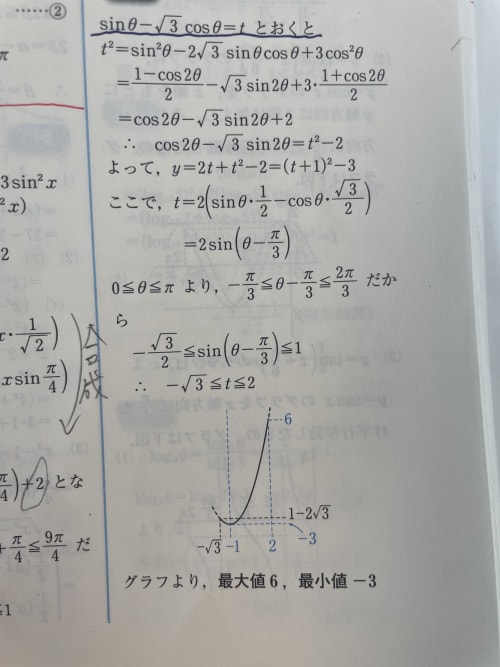 ……②
π
3sin²x
²x)
2
x・1/√2)
x sin π/4)
合成
π/4)+2 とな
+π/4≦9π/4 だ
≦1
sinθ−√3 cosθ=t とおくと
t²=sin²θ−2√3 sinθcosθ+3cos²θ
=(1−cos2θ)/2−√3 sin2θ+3・(1+cos2θ)/2
=cos2θ−√3 sin2θ+2
∴ cos2θ−√3 sin2θ=t²−2
よって，y=2t+t²−2=(t+1)²−3
ここで，t=2(sinθ・1/2−cosθ・√3/2)
=2sin(θ−π/3)
0≦θ≦π より，−π/3≦θ−π/3≦2π/3 だか
ら
−√3/2≦sin(θ−π/3)≦1
∴ −√3≦t≦2
6
1−2√3
−3
−√3 −1 2
グラフより，最大値 6，最小値 −3